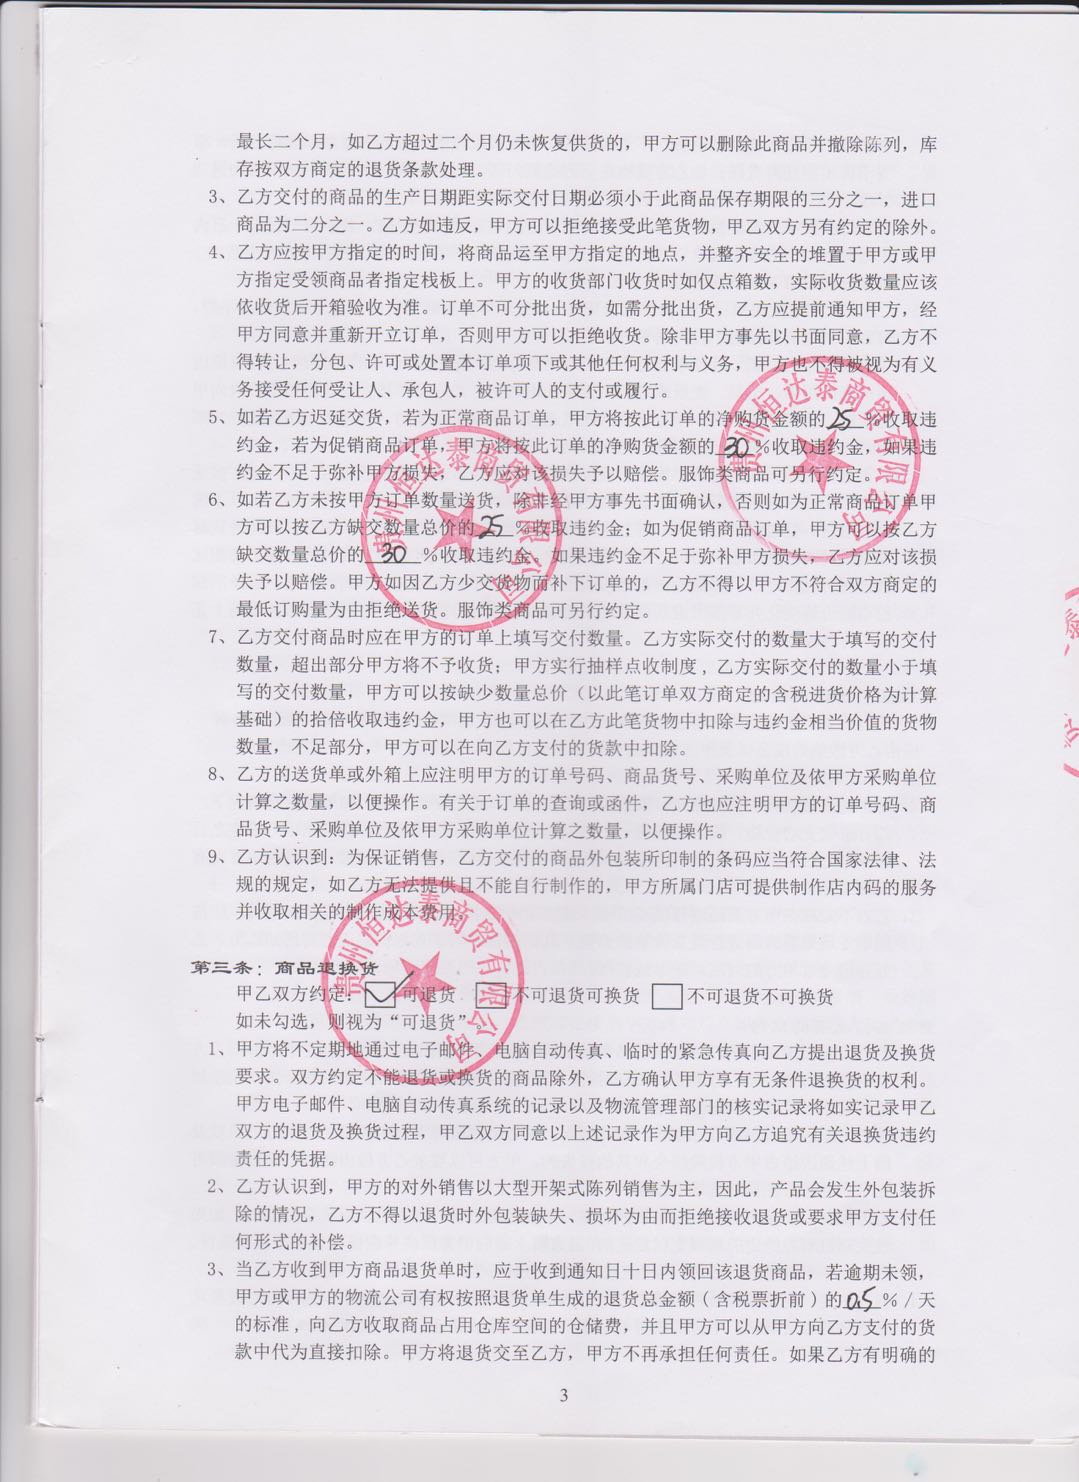 最长二个月，如乙方超过二个月仍未恢复供货的，甲方可以删除此商品并撤除陈列，库
存按双方商定的退货条款处理。
3、乙方交付的商品的生产日期距实际交付日期必须小于此商品保存期限的三分之一，进口
商品为二分之一。乙方如违反，甲方可以拒绝接受此笔货物，甲乙双方另有约定的除外。
4、乙方应按甲方指定的时间，将商品运至甲方指定的地点，并整齐安全的堆置于甲方或甲
方指定受领商品者指定栈板上。甲方的收货部门收货时如仅点箱数，实际收货数量应该
依收货后开箱验收为准。订单不可分批出货，如需分批出货，乙方应提前通知甲方，经
甲方同意并重新开立订单，否则甲方可以拒绝收货。除非甲方事先以书面同意，乙方不
得转让，分包、许可或处置本订单项下或其他任何权利与义务，甲方也不得被视为有义
务接受任何受让人、承包人，被许可人的支付或履行。
5、如若乙方迟延交货，若为正常商品订单，甲方将按此订单的净购货金额的25%收取违
约金，若为促销商品订单，甲方将按此订单的净购货金额的30%收取违约金，如果违
约金不足于弥补甲方损失，乙方应对该损失予以赔偿。服饰类商品可另行约定。
6、如若乙方未按甲方订单数量送货，除非经甲方事先书面确认，否则如为正常商品订单甲
方可以按乙方缺交数量总价的25%收取违约金；如为促销商品订单，甲方可以按乙方
缺交数量总价的30%收取违约金。如果违约金不足于弥补甲方损失，乙方应对该损
失予以赔偿。甲方如因乙方少交货物而补下订单的，乙方不得以甲方不符合双方商定的
最低订购量为由拒绝送货。服饰类商品可另行约定。
7、乙方交付商品时应在甲方的订单上填写交付数量。乙方实际交付的数量大于填写的交付
数量，超出部分甲方将不予收货；甲方实行抽样点收制度，乙方实际交付的数量小于填
写的交付数量，甲方可以按缺少数量总价（以此笔订单双方商定的含税进货价格为计算
基础）的拾倍收取违约金，甲方也可以在乙方此笔货物中扣除与违约金相当价值的货物
数量，不足部分，甲方可以在向乙方支付的货款中扣除。
8、乙方的送货单或外箱上应注明甲方的订单号码、商品货号、采购单位及依甲方采购单位
计算之数量，以便操作。有关于订单的查询或函件，乙方也应注明甲方的订单号码、商
品货号、采购单位及依甲方采购单位计算之数量，以便操作。
9、乙方认识到：为保证销售，乙方交付的商品外包装所印制的条码应当符合国家法律、法
规的规定，如乙方无法提供且不能自行制作的，甲方所属门店可提供制作店内码的服务
并收取相关的制作成本费用。
第三条：商品退换货
甲乙双方约定：☑可退货 □不可退货可换货 □不可退货不可换货
如未勾选，则视为“可退货”。
1、甲方将不定期地通过电子邮件、电脑自动传真、临时的紧急传真向乙方提出退货及换货
要求。双方约定不能退货或换货的商品除外，乙方确认甲方享有无条件退换货的权利。
甲方电子邮件、电脑自动传真系统的记录以及物流管理部门的核实记录将如实记录甲乙
双方的退货及换货过程，甲乙双方同意以上述记录作为甲方向乙方追究有关退换货违约
责任的凭据。
2、乙方认识到，甲方的对外销售以大型开架式陈列销售为主，因此，产品会发生外包装拆
除的情况，乙方不得以退货时外包装缺失、损坏为由而拒绝接收退货或要求甲方支付任
何形式的补偿。
3、当乙方收到甲方商品退货单时，应于收到通知日十日内领回该退货商品，若逾期未领，
甲方或甲方的物流公司有权按照退货单生成的退货总金额（含税票折前）的0.5%／天
的标准，向乙方收取商品占用仓库空间的仓储费，并且甲方可以从甲方向乙方支付的货
款中代为直接扣除。甲方将退货交至乙方，甲方不再承担任何责任。如果乙方有明确的
3
贵州恒达泰商贸有限公司
贵州恒达泰商贸有限公司
贵州恒达泰商贸有限公司